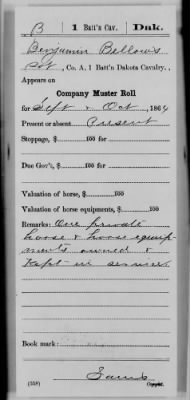 B | 1 Batt'n Cav. | Dak.
Benjamin Bellows
Pvt, Co. A, 1 Batt'n Dakota Cavalry.
Appears on
Company Muster Roll
for Sept & Oct, 1864
Present or absent Present
Stoppage, $ 100 for
Due Gov't, $ 100 for
Valuation of horse, $ 100
Valuation of horse equipments, $ 100
Remarks: One private
horse & horse equip-
ments owned &
kept in service.
Book mark:
(358)
Copyist.